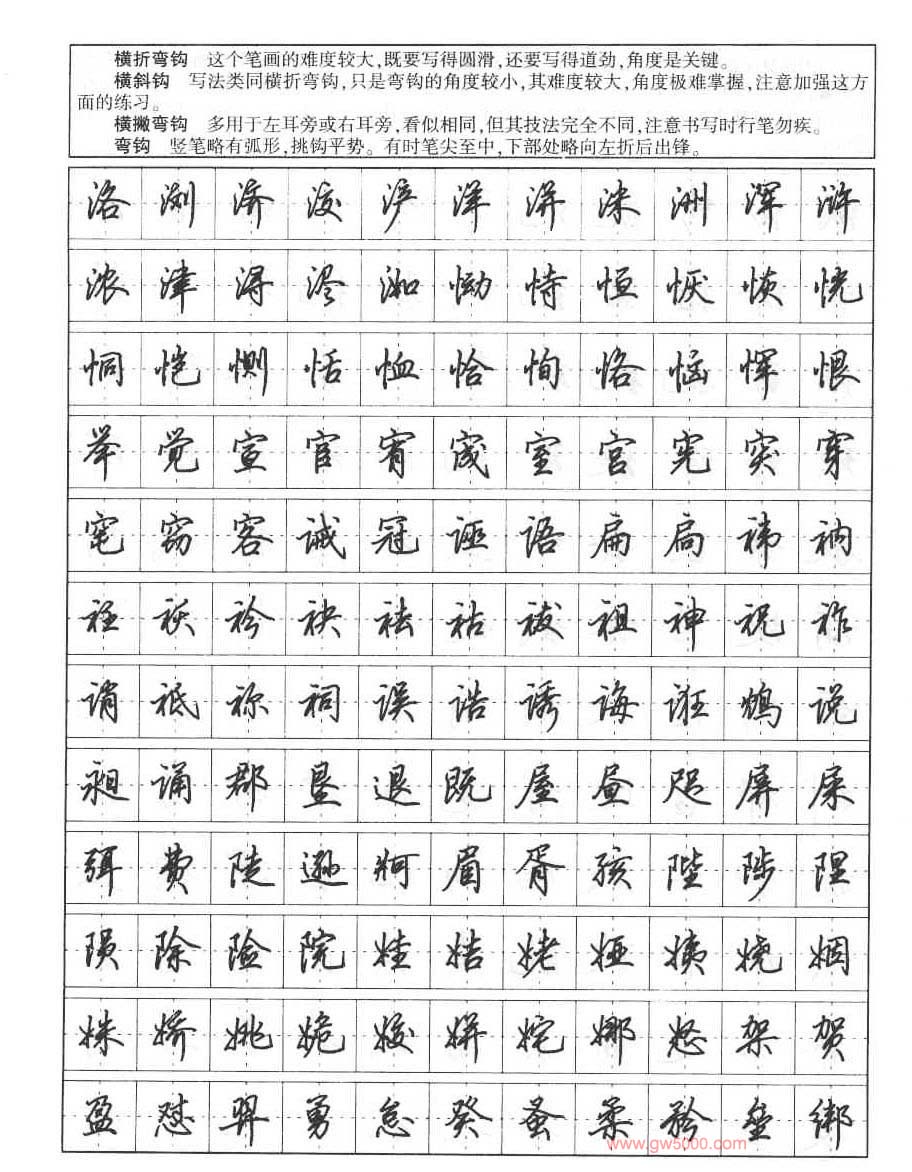 横折弯钩　这个笔画的难度较大,既要写得圆滑,还要写得道劲,角度是关键。
横斜钩　写法类同横折弯钩,只是弯钩的角度较小,其难度较大,角度极难掌握,注意加强这方
面的练习。
横撇弯钩　多用于左耳旁或右耳旁,看似相同,但其技法完全不同,注意书写时行笔勿疾。
弯钩　竖笔略有弧形,挑钩平势。有时笔尖至中,下部处略向左折后出锋。
洛 浏 济 洨 浐 洋 洴 洣 洲 浑 浒
浓 津 浔 浕 洳 恸 恃 恒 恹 恢 恍
恫 恺 恻 恬 恤 恰 恂 恪 恼 恽 恨
举 觉 宣 宦 宥 宬 室 宫 宪 突 穿
窀 窃 客 诫 冠 诬 语 扁 扃 袆 衲
衽 袄 衿 袂 祛 祜 祓 祖 神 祝 祚
诮 祗 祢 祠 误 诰 诱 诲 诳 鸩 说
昶 诵 郡 垦 退 既 屋 昼 咫 屏 屎
弭 费 陡 逊 牁 眉 胥 孩 陛 陟 陧
陨 除 险 院 娃 姞 姥 娅 姨 娆 姻
姝 娇 姚 姽 姣 姘 姹 娜 怒 架 贺
盈 怼 羿 勇 怠 癸 蚤 柔 矜 垒 绑
www.gw5000.com